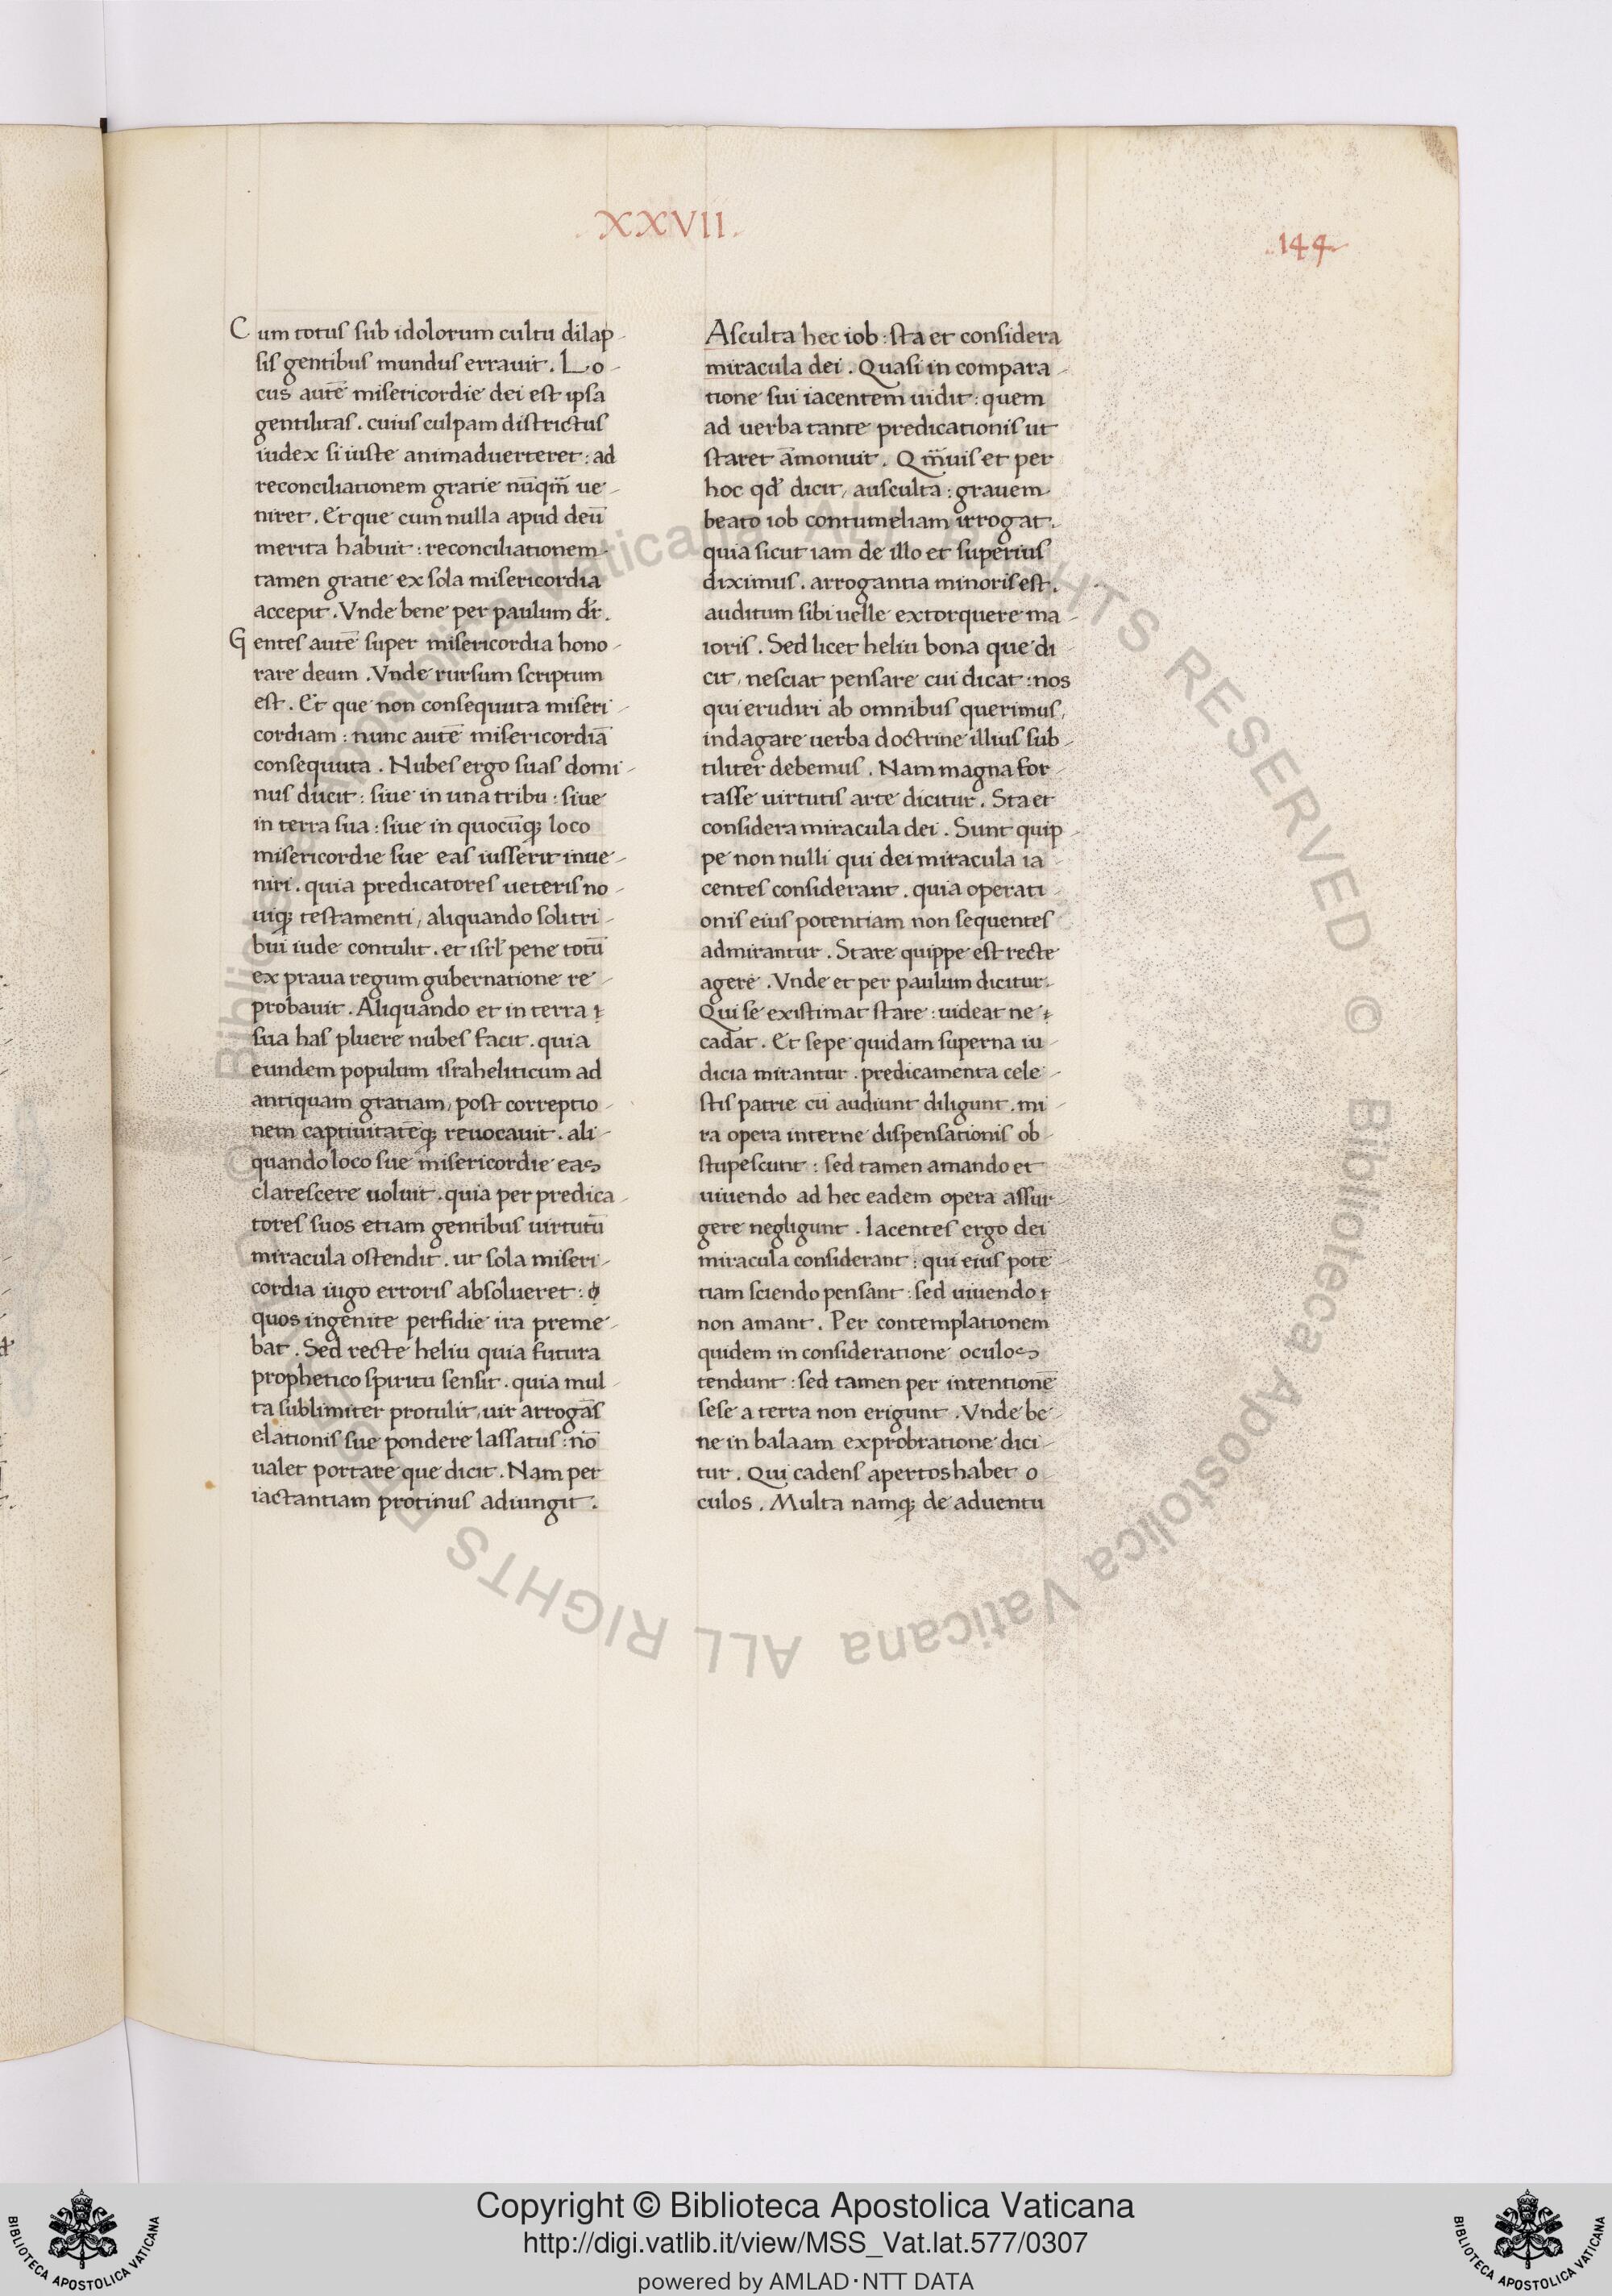 .XXVII.
.144.
Cum totus sub idolorum cultu dilap-
sis gentibus mundus errauit. Lo-
cus autē misericordie dei est ipsa
gentilitas. cuius culpam districtus
iudex si iuste animaduerteret: ad
reconciliationem gratie nūqm̄ ue-
niret. Et que cum nulla apud deū
merita habuit: reconciliationem-
tamen gratie ex sola misericordia
accepit. Vnde bene per paulum dr̄.
Gentes autē super misericordia hono-
rare deum. Vnde rursum scriptum
est. Et que non consequuta miseri-
cordiam: nunc autē misericordiā
consequuta. Nubes ergo suas domi-
nus ducit: siue in una tribu: siue
in terra sua: siue in quocūq; loco
misericordie sue eas iusserit inue-
niri. quia predicatores ueteris no-
uiq; testamenti, aliquando soli tri-
bui iude contulit. et isrl̄ pene totū
ex praua regum gubernatione re-
probauit. Aliquando et in terra ɩ
sua has pluere nubes facit. quia
eundem populum israheliticum ad
antiquam gratiam, post correptio-
nem captiuitatēq; reuocauit. ali-
quando loco sue misericordie eas
clarescere uoluit. quia per predica-
tores suos etiam gentibus uirtutū
miracula ostendit. ut sola miseri-
cordia iugo erroris absolueret: ꝍ
quos ingenite perfidie ira preme-
bat. Sed recte heliu quia futura
prophetico spiritu sensit. quia mul-
ta sublimiter protulit, uir arrogās
elationis sue pondere lassatus: nō
ualet portare que dicit. Nam per
iactantiam protinus adiungit.
Asculta hec iob: sta et considera
miracula dei. Quasi in compara-
tione sui iacentem uidit: quem
ad uerba tante predicationis ut
staret āmonuit. Qm̄uis et per
hoc qd̄ dicit, ausculta: grauem
beato iob contumeliam irrogat.
quia sicut iam de illo et superius
diximus. arrogantia minoris est.
auditum sibi uelle extorquere ma-
ioris. Sed licet heliu bona que di-
cit, nesciat pensare cui dicat: nos
qui erudiri ab omnibus querimus,
indagare uerba doctrine illius sub-
tiliter debemus. Nam magna for-
tasse uirtutis arte dicitur. Sta et
considera miracula dei. Sunt quip-
pe non nulli qui dei miracula ia-
centes considerant. quia operati-
onis eius potentiam non sequentes
admirantur. Stare quippe est recte
agere. Vnde et per paulum dicitur.
Qui se existimat stare: uideat ne ɩ
cadat. Et sepe quidam superna iu-
dicia mirantur. predicamenta cele-
stis patrie cū audiunt diligunt. mi-
ra opera interne dispensationis ob-
stupescunt: sed tamen amando et
uiuendo ad hec eadem opera assur-
gere negligunt. Iacentes ergo dei
miracula considerant: qui eius potē-
tiam sciendo pensant: sed uiuendo ɩ
non amant. Per contemplationem
quidem in consideratione oculos
tendunt: sed tamen per intentionē
sese a terra non erigunt. Vnde be-
ne in balaam exprobratione dici-
tur. Qui cadens apertos habet o-
culos. Multa namq; de aduentu
© Biblioteca Apostolica Vaticana ALL RIGHTS RESERVED © Biblioteca Apostolica Vaticana ALL RIGHTS RESERVED
Copyright © Biblioteca Apostolica Vaticana
http://digi.vatlib.it/view/MSS_Vat.lat.577/0307
powered by AMLAD·NTT DATA
BIBLIOTECA APOSTOLICA VATICANA
BIBLIOTECA APOSTOLICA VATICANA